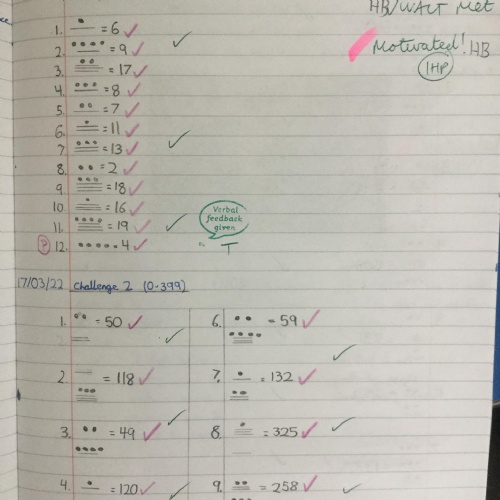 HB/WALT Met
Motivated! HB
1HP
1. = 6
2. = 9
3. = 17
4. = 8
5. = 7
6. = 11
7. = 13
8. = 2
9. = 18
10. = 16
11. = 19
12. 4
Verbal
feedback
given
T
17/03/22 Challenge 2 (0-399)
1. = 50
6. = 59
2. = 118
7. = 132
3. = 49
8. = 325
4. = 120
9. = 258